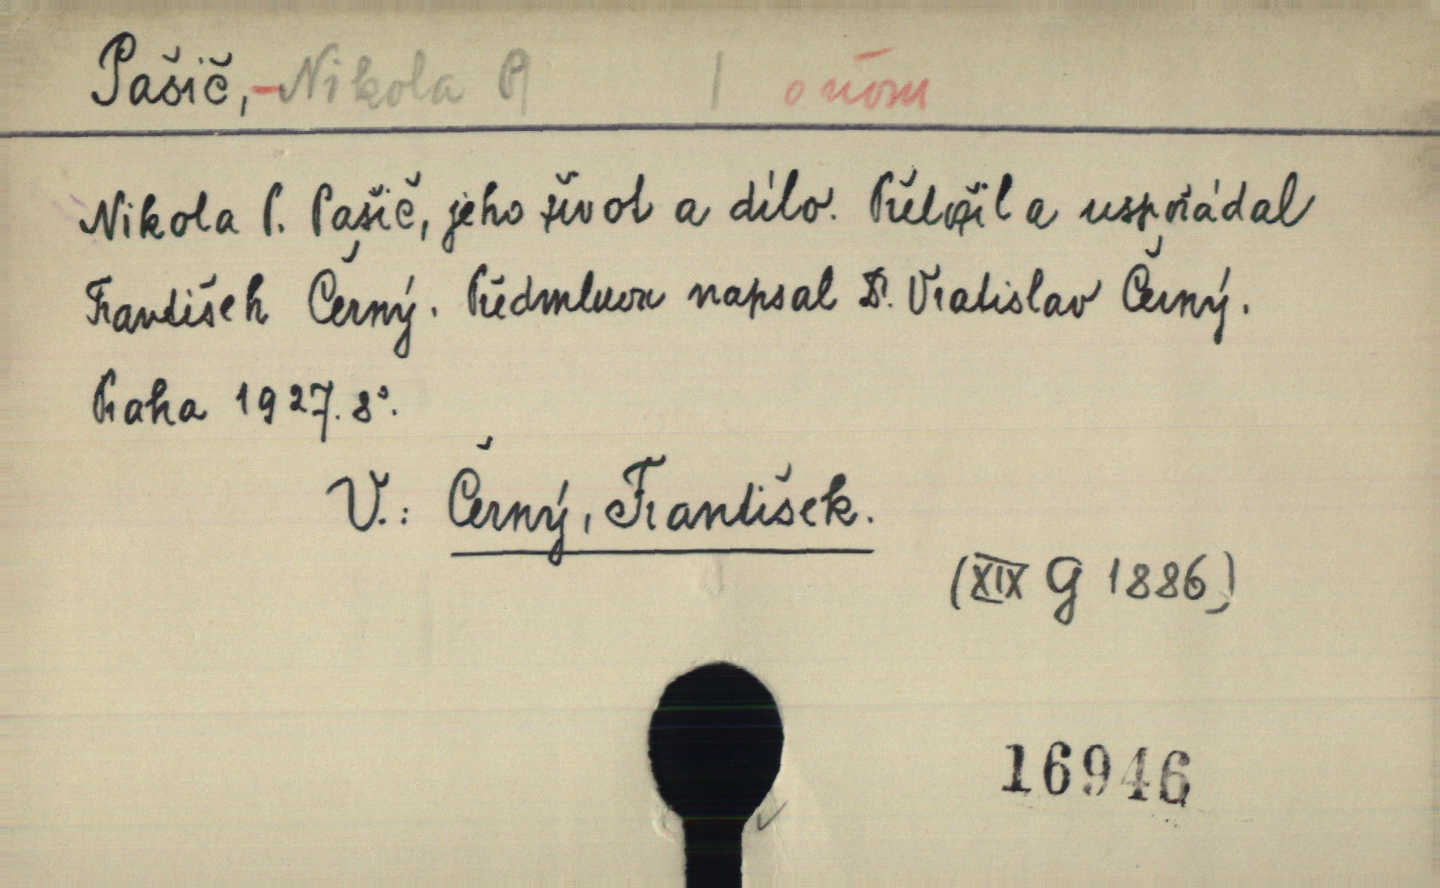 Pašič, - Nikola P. | o něm
Nikola P. Pašič, jeho život a dílo. Přeložil a uspořádal
František Černý. Předmluvu napsal Dr. Vratislav Černý.
Praha 1927. 8°.
V.: Černý, František.
(XIX G 1886)
16946